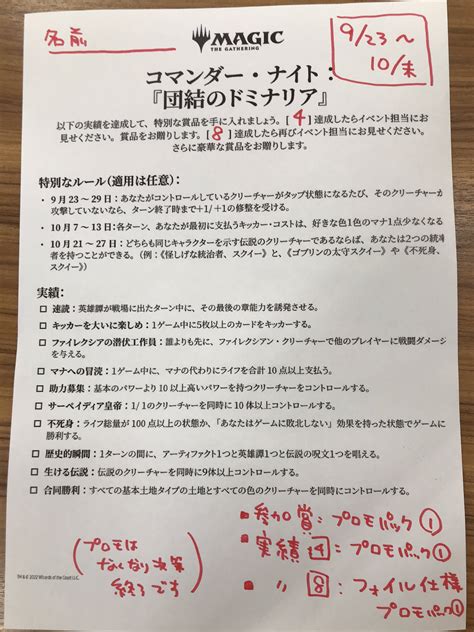 名前
MAGIC
THE GATHERING
9/23〜
10/末
コマンダー・ナイト：
『団結のドミナリア』
以下の実績を達成して、特別な賞品を手に入れましょう。[ 4 ]達成したらイベント担当にお
見せください。賞品をお贈りします。[ 8 ]達成したら再びイベント担当にお見せください。
さらに豪華な賞品をお贈りします。
特別なルール（適用は任意）：
• 9月23〜29日：あなたがコントロールしているクリーチャーがタップ状態になるたび、そのクリーチャーが
攻撃していないなら、ターン終了時まで+1/+1の修整を受ける。
• 10月7〜13日：各ターン、あなたが最初に支払うキッカー・コストは、好きな色1色のマナ1点少なくなる
• 10月21〜27日：どちらも同じキャラクターを示す伝説のクリーチャーであるならば、あなたは2つの統率
者を持つことができる。（例：《怪しげな統治者、スクイー》と、《ゴブリンの太守スクイー》や《不死身、
スクイー》）
実績：
□ 速読：英雄譚が戦場に出たターン中に、その最後の章能力を誘発させる。
□ キッカーを大いに楽しめ：1ゲーム中に5枚以上のカードをキッカーする。
□ ファイレクシアの潜伏工作員：誰よりも先に、ファイレクシアン・クリーチャーで他のプレイヤーに戦闘ダメージ
を与える。
□ マナへの冒涜：1ゲーム中に、マナの代わりにライフを合計10点以上支払う。
□ 助力募集：基本のパワーより10以上高いパワーを持つクリーチャーをコントロールする。
□ サーペイディア皇帝：1/1のクリーチャーを同時に10体以上コントロールする。
□ 不死身：ライフ総量が100点以上の状態か、「あなたはゲームに敗北しない」効果を持った状態でゲームに
勝利する。
□ 歴史的瞬間：1ターンの間に、アーティファクト1つと英雄譚1つと伝説の呪文1つを唱える。
□ 生ける伝説：伝説のクリーチャーを同時に9体以上コントロールする。
□ 合同勝利：すべての基本土地タイプの土地とすべての色のクリーチャーを同時にコントロールする。
・参加賞：プロモパック①
・実績4：プロモパック①
・〃 8：フォイル仕様
プロモパック①
（プロモは
なくなり次第
終了です）
TM & © 2022 Wizards of the Coast LLC.